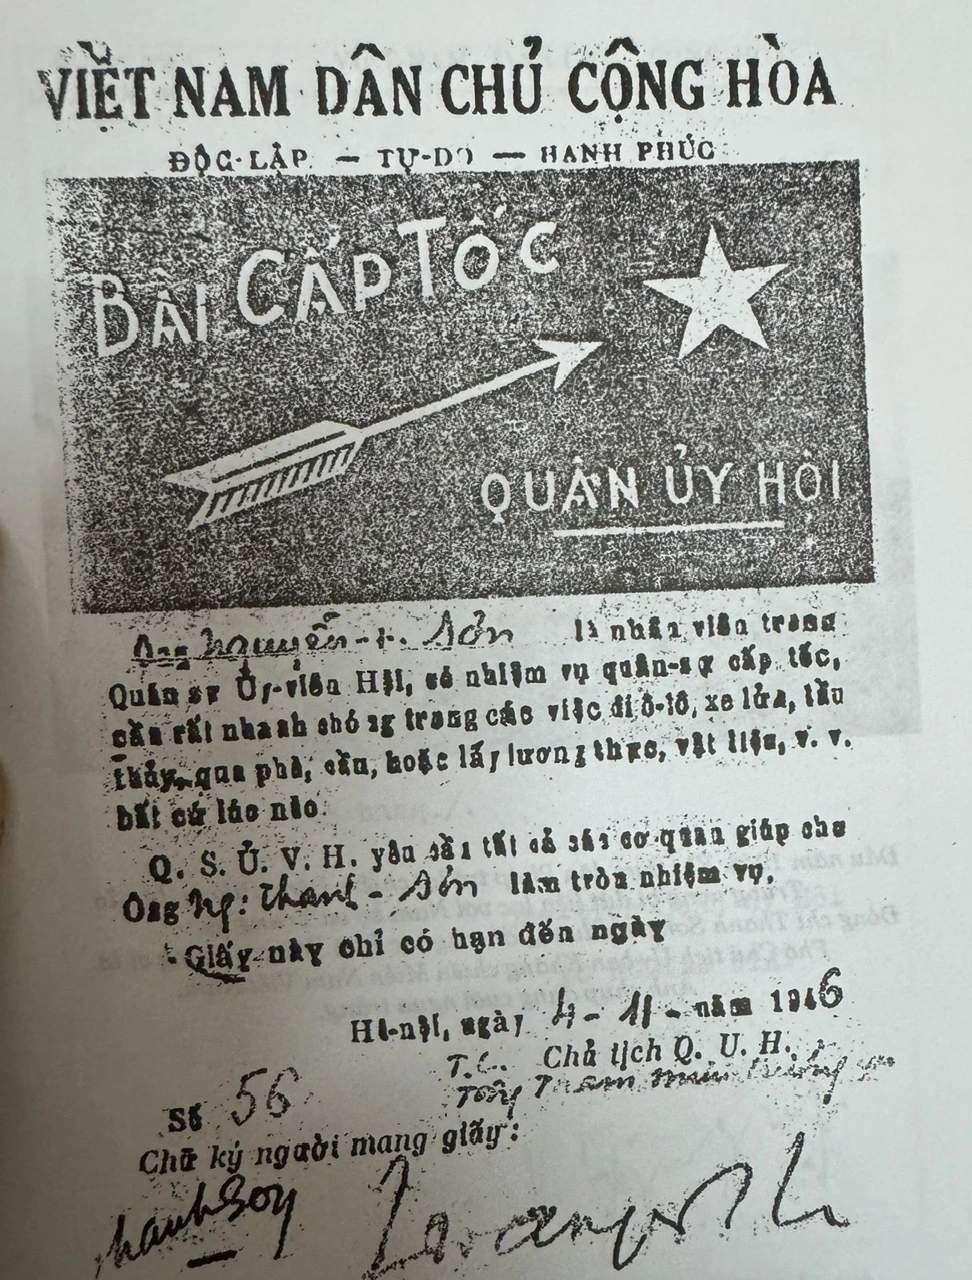 VIỆT NAM DÂN CHỦ CỘNG HÒA
ĐỘC-LẬP — TỰ-DO — HẠNH PHÚC
BÀI CẤP TỐC
QUÂN ỦY HỘI
Ông Nguyễn-t. Sơn là nhân viên trong
Quân sự Ủy-viên Hội, có nhiệm vụ quân-sự cấp tốc,
cần rất nhanh chóng trong các việc đi ô-tô, xe lửa, tầu
thủy, qua phà, cầu, hoặc lấy lương thực, vật liệu, v. v.
bất cứ lúc nào.
Q. S. Ủ. V. H. yêu cầu tất cả các cơ quan giúp cho
Ông Ng: Thanh-Sơn làm tròn nhiệm vụ.
Giấy này chỉ có hạn đến ngày
Hà-nội, ngày 4-11-năm 1946
T.L. Chủ tịch Q. U. H.
Tổng Tham mưu trưởng
Số 56
Chữ ký người mang giấy:
ThanhSơn